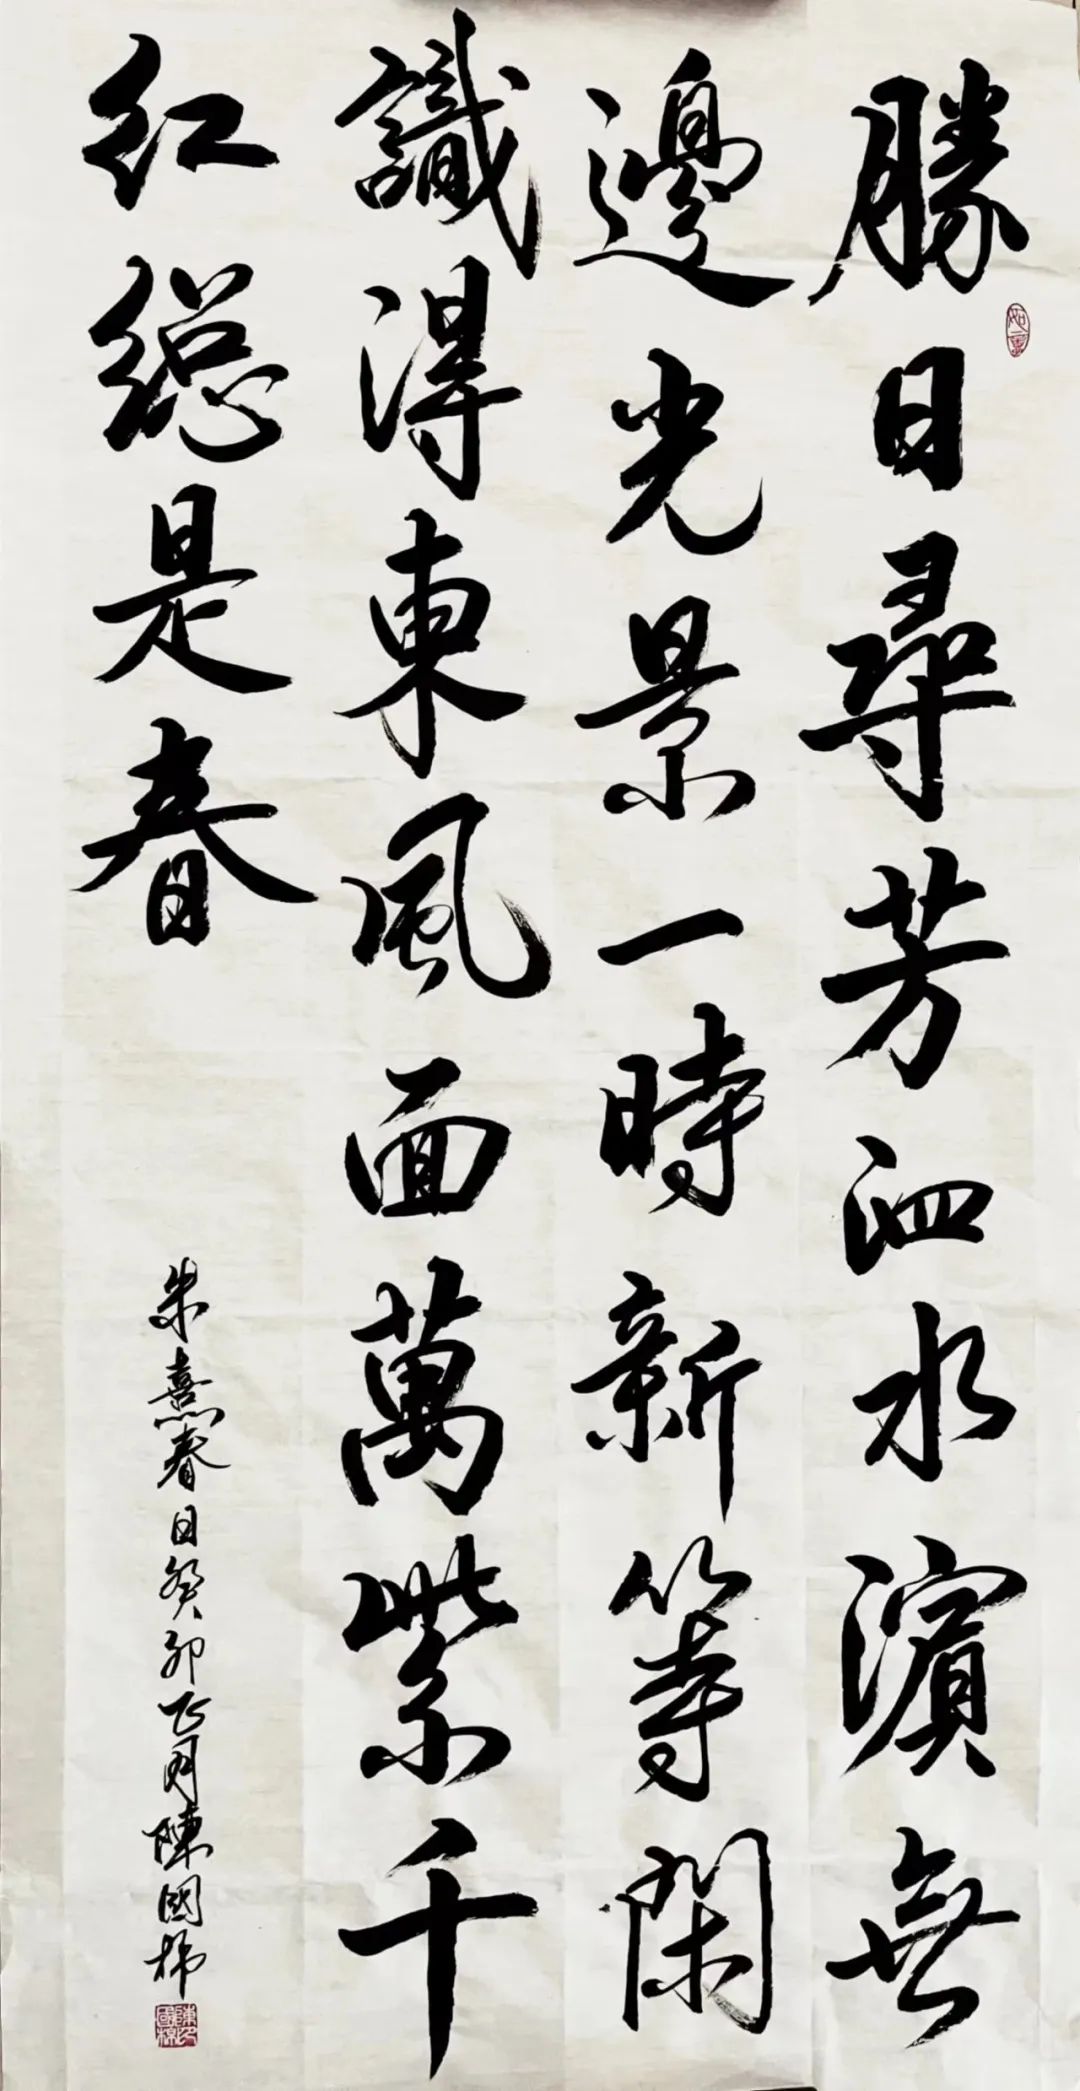 勝日尋芳泗水濱無
邊光景一時新等閑
識得東風面萬紫千
紅總是春
朱熹春日癸卯正月陳國